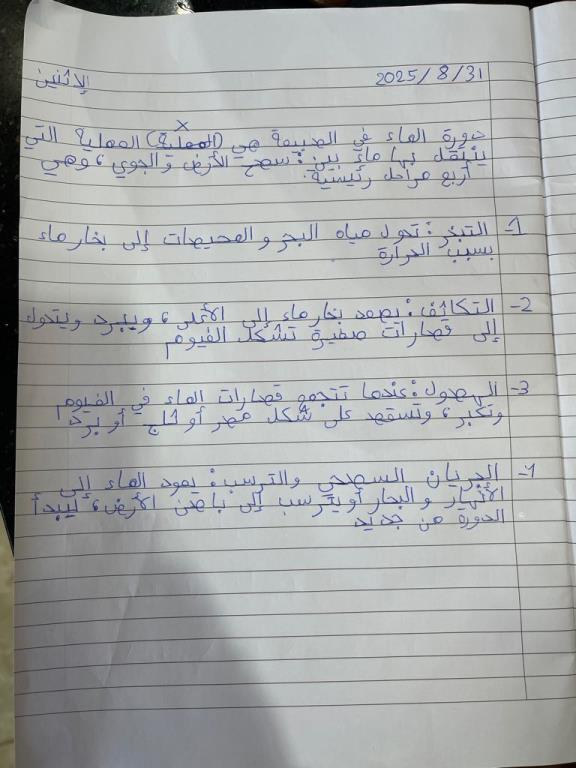 الإثنين 2025/8/31
x
دورة الماء في الطبيعة هي (العملية) العملية التي
ينتقل بها ماء بين: سطح الأرض والجوي، وهي
أربع مراحل رئيسية.
1- التبخر: تحول مياه البحر والمحيطات إلى بخار ماء
بسبب الحرارة
2- التكاثف: يصعد بخار ماء إلى الأعلى، ويبرد ويتحول
إلى قطارات صغيرة تشكل الغيوم
3- الهطول: عندما تتجمع قطارات الماء في الغيوم
وتكبر، وتسقط على شكل مطر أو ثلج أو برد
4- الجريان السطحي والترسب: يعود الماء إلى
الأنهار والبحار أو يترسب إلى باطن الأرض، ليبدأ
الدورة من جديد